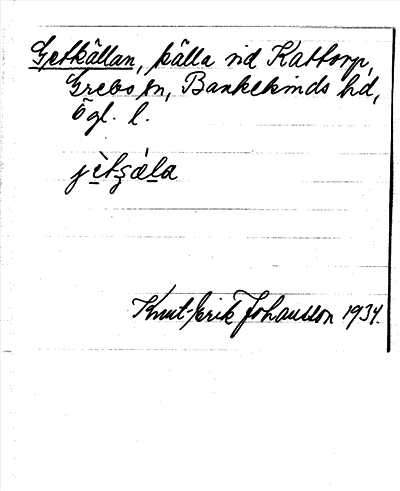 Getkällan, källa vid Kattorp,
Grebo sn, Bankekinds hd,
Ögl. l.
jètʂǽla
Knut-Erik Johansson 1934.